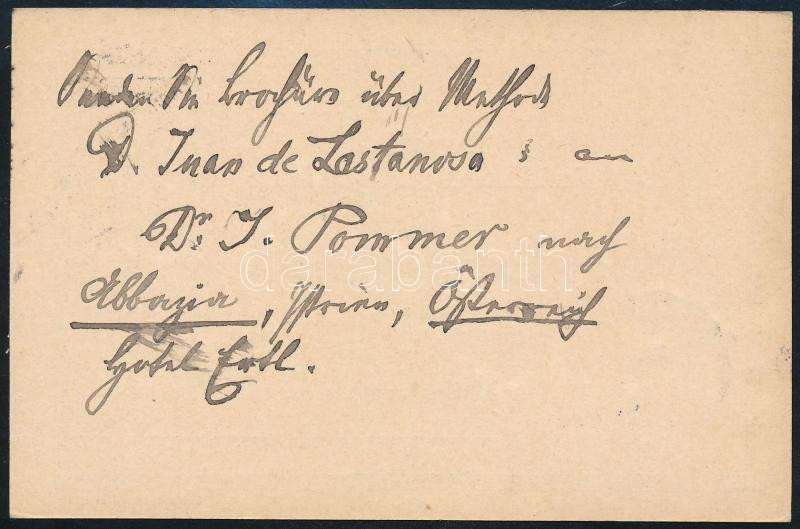 Senden Sie brochüre über Methode
D. Juan de Lastanosa's an
Dr. J. Pommer nach
Abbazia, Istrien, Österreich
Hotel Ertl.
darabanth